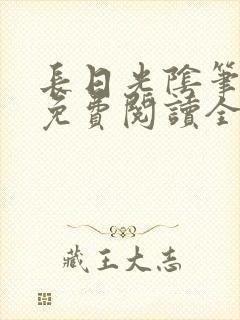 長日光陰筆
免費閱讀全
藏王大志